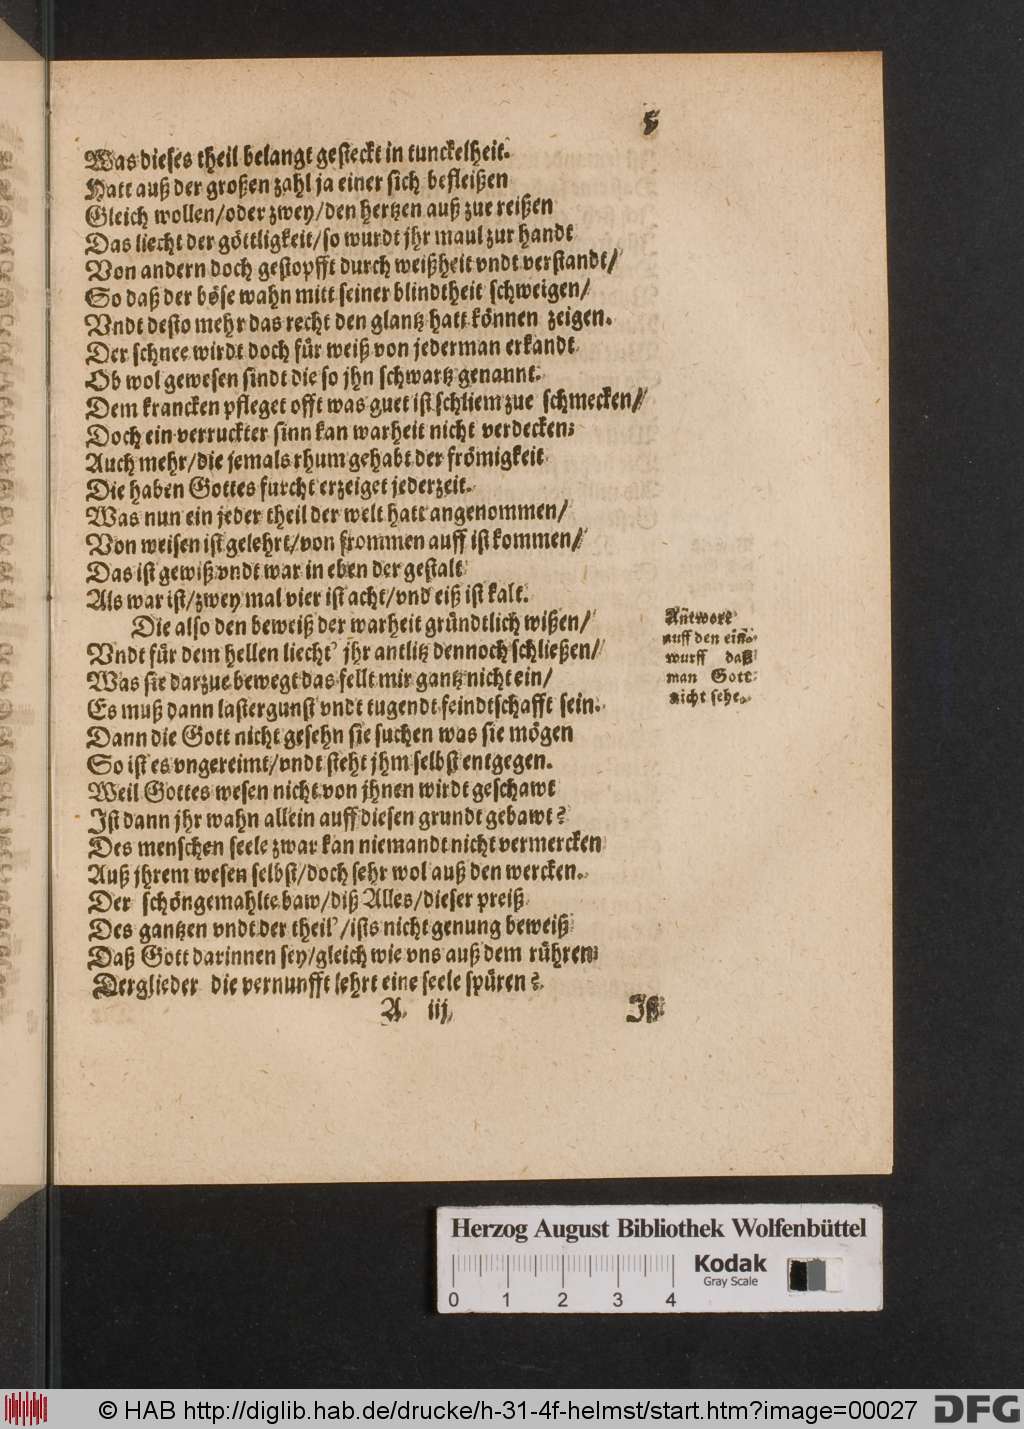 5
Was dieses theil belangt gesteckt in tunckelheit.
Hatt auß der großen zahl ja einer sich befleißen
Gleich wollen/oder zwey/den hertzen auß zue reißen
Das liecht der göttligkeit/so wurdt jhr maul zur handt
Von andern doch gestopfft durch weißheit vndt verstandt/
So daß der böse wahn mitt seiner blindtheit schweigen/
Vndt desto mehr das recht den glantz hatt können zeigen.
Der schnee wirdt doch für weiß von jederman erkandt
Ob wol gewesen sindt die so jhn schwartz genannt.
Dem krancken pfleget offt was guet ist schliem zue schmecken/
Doch ein verruckter sinn kan warheit nicht verdecken;
Auch mehr/die jemals rhum gehabt der frömigkeit
Die haben Gottes furcht erzeiget jederzeit.
Was nun ein jeder theil der welt hatt angenommen/
Von weisen ist gelehrt/von frommen auff ist kommen/
Das ist gewiß vndt war in eben der gestalt
Als war ist/zwey mal vier ist acht/vnd eiß ist kalt.
Die also den beweiß der warheit gründtlich wißen/
Vndt für dem hellen liecht' jhr antlitz dennoch schließen/
Was sie darzue bewegt das fellt mir gantz nicht ein/
Es muß dann lastergunst vndt tugendt feindtschafft sein.
Dann die Gott nicht gesehn sie suchen was sie mögen
So ist es vngereimt/vndt steht jhm selbst entgegen.
Weil Gottes wesen nicht von jhnen wirdt geschawt
Ist dann jhr wahn allein auff diesen grundt gebawt?
Des menschen seele zwar kan niemandt nicht vermercken
Auß jhrem wesen selbst/doch sehr wol auß den wercken.
Der schöngemahlte baw/diß Alles/dieser preiß
Des gantzen vndt der theil'/ists nicht genung beweiß
Daß Gott darinnen sey/gleich wie vns auß dem rühren
Der glieder die vernunfft lehrt eine seele spüren?
A iij
Ist
Antwort
auff den ein-
wurff daß
man Gott
nicht sehe.
Herzog August Bibliothek Wolfenbüttel
Kodak
Gray Scale
0 1 2 3 4
© HAB http://diglib.hab.de/drucke/h-31-4f-helmst/start.htm?image=00027
DFG